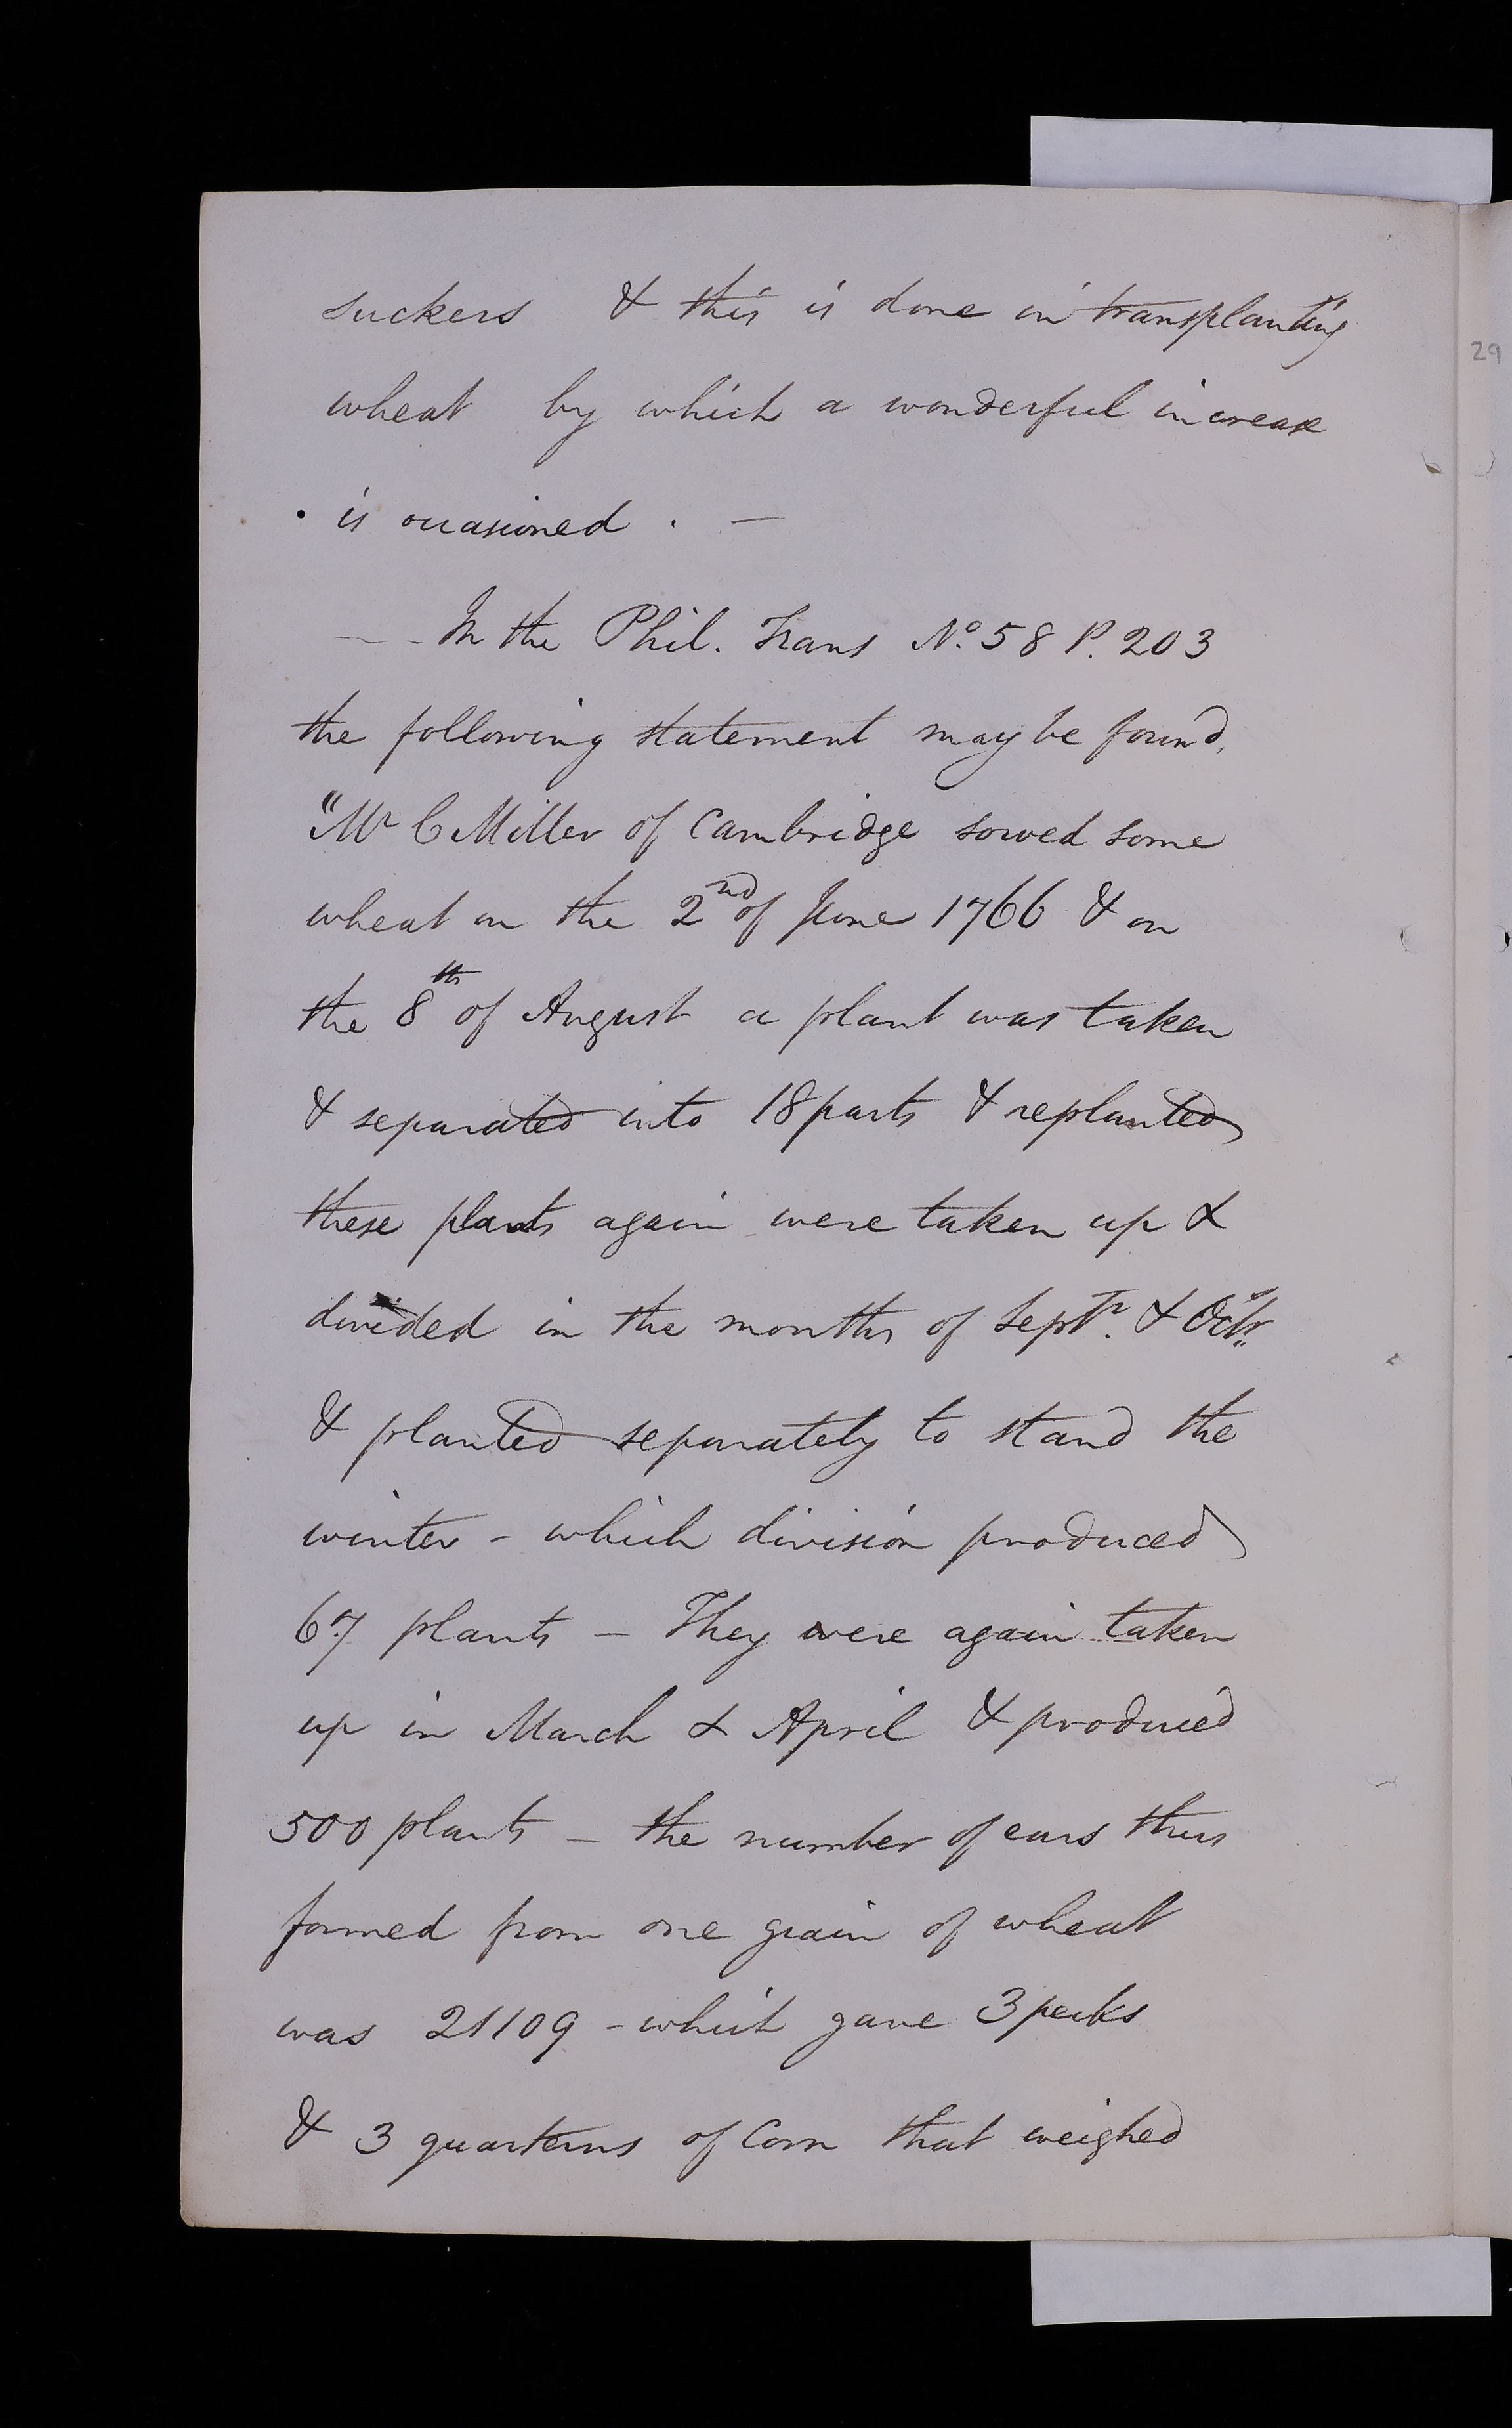 suckers & this is done in transplanting
29
wheat by which a wonderful increase
is occasioned . —
— In the Phil. Trans No. 58 P. 203
the following statement may be found,
"Mr C Miller of Cambridge sowed some
wheat on the 2nd of June 1766 & on
the 8th of August a plant was taken
& separated into 18 parts & replanted
these plants again were taken up &
divided in the months of Septr. & Octr.
& planted separately to stand the
winter - which division produced
67 plants — They were again taken
up in March & April & produced
500 plants — the number of ears thus
formed from one grain of wheat
was 21109 - which gave 3 pecks
& 3 quarterns of Corn that weighed